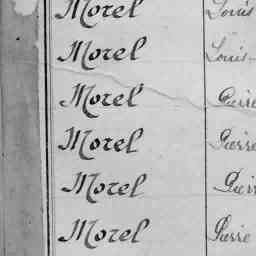 Morel Louis
Morel Louis
Morel Pierre
Morel Pierre
Morel Pierre
Morel Pierre